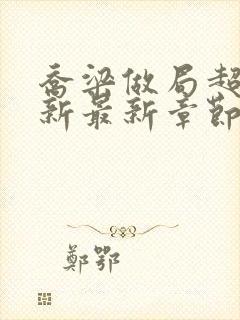 喬梁做局超
新最新章節
鄭鄂